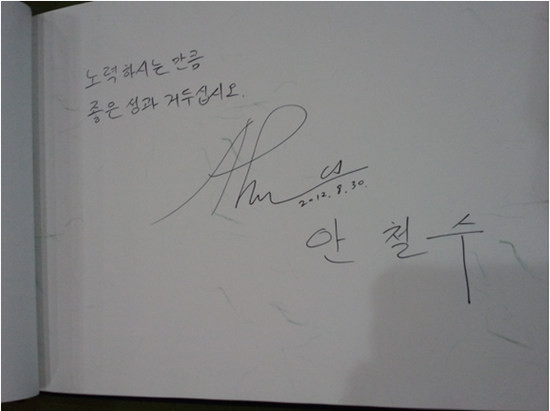 노력하시는 만큼
좋은 성과 거두십시오.
Ahn
cs
2012.8.30.
안 철 수